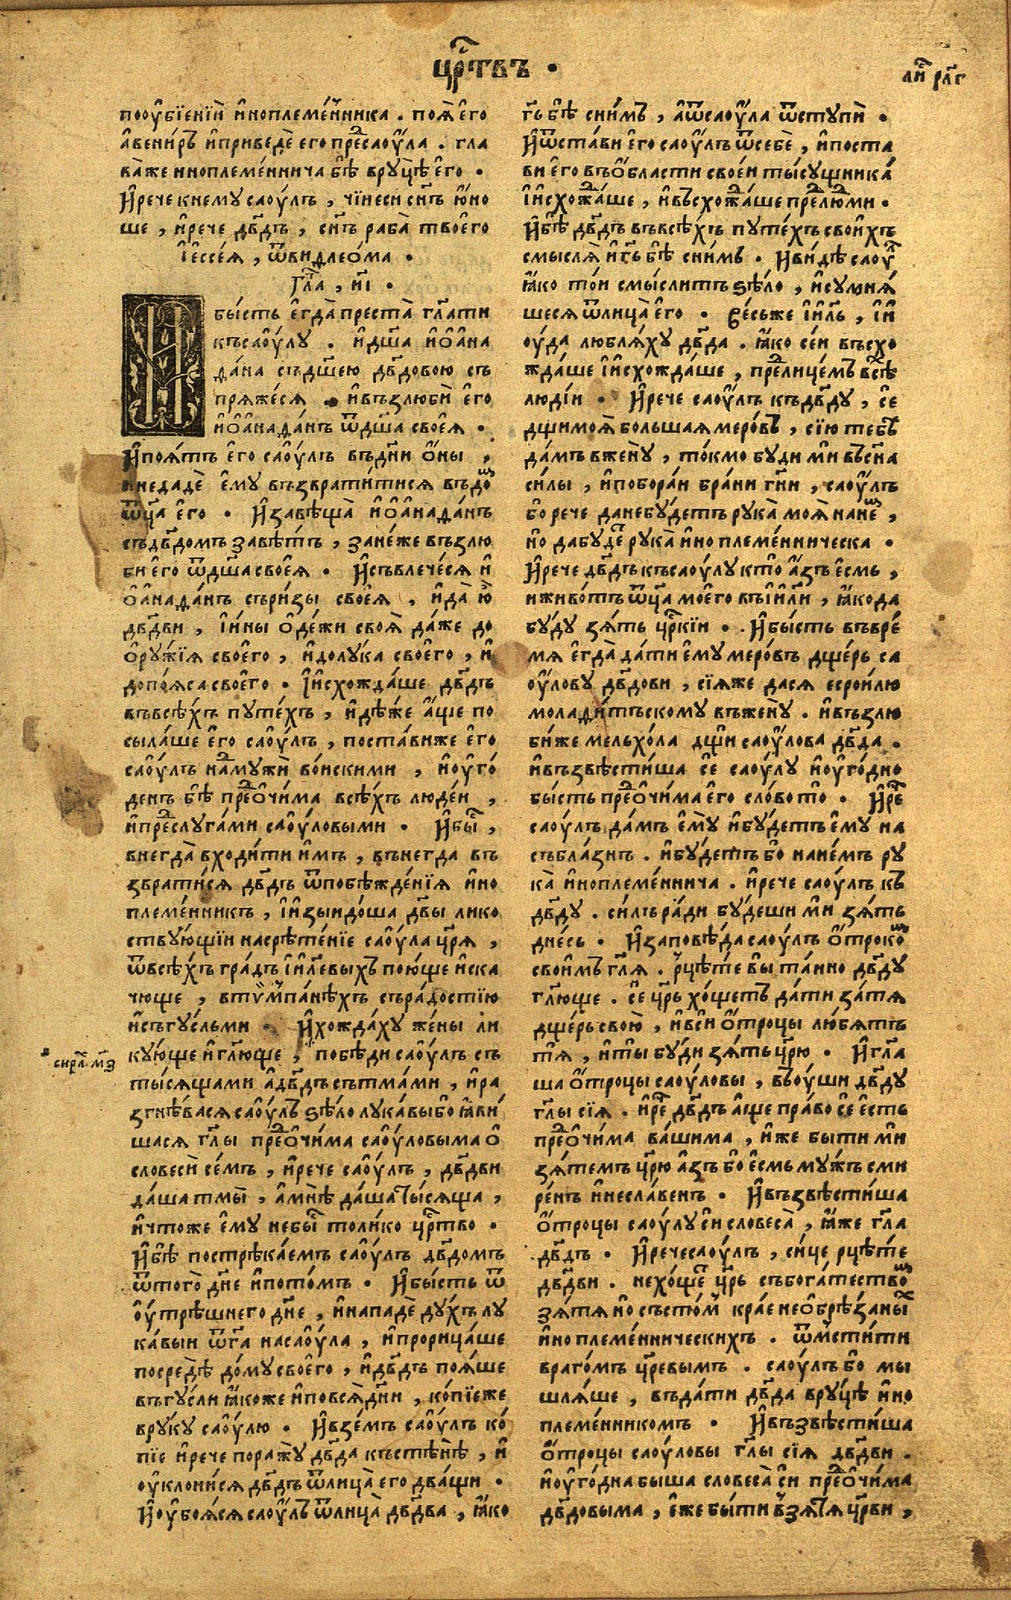 цр҃твъ ·
ли҃ рл҃г
пооу҆бїе́нїи и҆ноплеме́нника . поя̀ е҆го
а҆вени́ръ и҆приведѐ е҆го пред̾сао́ула . гла
ва́же и҆ноплеме́ннича бѣ̀ вруцѣ̀ е҆го ·
И҆рече к̾нему сао́улъ , чїи еси сн҃ъ ю҆но
ше , и҆рече дв҃дъ , сн҃ъ раба̀ твоего̀
і҆ессе́я , ѿвидлео́ма ·
Гла̑ , и҃і ·
И бы́сть е҆гда̀ преста̀ гл҃ати
къ сао́улу . и҆ дш҃а и҆о҆ана
да́на съ дш҃ею дв҃довою съ
пряже́ся · и҆възлюбѝ е҆го
и҆о҆анада́нъ ѿ дш҃а своея̀ ·
И҆поя́тъ е҆го̀ сао́улъ въ дни о҆ны ,
и҆недадѐ е҆му възврати́тися въ до́м
ѿц҃а е҆го · И҆завѣща̀ и҆о҆анада́нъ
съ дв҃домъ завѣ́тъ , зане́же възлю
би е҆го ѿ дш҃а своея̀ · И҆съвлече́ся и҆
о҆анада́нъ съ ри́зы своея̀ , и҆да̀ ю҆
дв҃дви , и҆и́ны о҆де́жи своя̀ да́же до
о҆ру́жїя своего̀ , и҆до лука своего̀ , и҆
до по́яса своего̀ · И҆исхожда́ше дв҃дъ
въ всѣ́хъ путе́хъ , и҆дѣ́же а҆ще по
сыла́ше е҆го̀ сао́улъ , поста́ви же е҆го
сао́улъ над̾ му́жи во́искими , и҆оу҆го́
денъ бѣ̀ пред̾ о҆чи́ма всѣ́хъ людеи ,
и҆ пред̾ слуга́ми сао́уловыми · И҆бы́с ,
внегда̀ входи́ти и҆мъ , вънегда въ
зврати́ся дв҃дъ ѿ побѣжде́нїя и҆но
племе́нникъ , и҆изыидо́ша дв҃ы лико
ству́ющїи на срѣ́тенїе сао́ула цр҃я ,
ѿ всѣ́хъ гра́дъ і҆и҃левыхъ пою́ще и҆ска
чю́ще , в̾ тѷмпа́нѣхъ съ ра́достїю
и҆съ гу́сльми · И҆хожда́ху же́ны ли
ку́юще и҆ гл҃юще , побѣди сао́улъ съ
сирах̑ м҃з
ты́сящами а҆ дв҃дъ съ тма́ми , и҆ ра
згнѣ́вася сао́улъ ѕѣло̀ лука́вы бо ꙗ҆ви́
шася гл҃ы пред̾ о҆чи́ма сао́уловыма о҆
словеси́ се́мъ , и҆рече сао́улъ , дв҃дви
да́ша тмы̀ , а҆мнѣ̀ да́ша ты́сяща ,
и҆ что́же е҆му не бы́с толи́ко цр҃тво ·
И҆бѣ̀ пострѣка́емъ сао́улъ дв҃домъ
ѿ того̀ дн҃е и҆пото́мъ · И҆бы́сть ѿ
оу҆трѣшнего дн҃е , и҆нападѐ ду́хъ лу
ка́выи ѿ бг҃а на сао́ула , и҆проприца́ше
посредѣ̀ до́му своего̀ , и҆дв҃дъ поя́ше
въ гу́сли ꙗ҆коже и҆ по вся̀ дни , ко́пїе же
в̾ру́ку сао́улю · И҆взе́мъ сао́улъ ко́
пїе и҆рече поражу̀ дв҃да къ стѣнѣ̀ , и҆
оу҆клони́ся дв҃дъ ѿ лица̀ его два́щи ·
И҆ оу҆боя́ся сао́улъ ѿ лица̀ дв҃два , ꙗ҆ко
гь҃ бѣ̀ сни́мъ , а҆ ѿ сао́ула ѿступѝ ·
И҆ѿста́ви е҆го сао́улъ ѿ себѐ , и҆поста
ви е҆го въ о҆бласти своеи ты́сущника́
и҆исхожа́ше , и҆въсхожа́ше пред̾ людми ·
И҆бѣ̀ дв҃дъ въ всѣ́хъ путе́хъ свои́хъ
смысля̀ и҆ гь҃ бѣ̀ сни́мъ · И҆ви́дѣ сао́ул
ꙗ҆ко то́и смы́слитъ ѕѣло , и҆сумня́
шеся ѿ лица̀ е҆го · Ве́сь же і҆и҃ль , і҆и
оу́да любля́ху дв҃да . ꙗ҆ко се́и въсхо
жда́ше и҆исхожда́ше , пред̾ лице́мъ всѣ
лю́дїи · И҆рече сао́улъ къ дв҃ду , се
дщи моя̀ большая меро́въ , сїю тебѣ
да́мъ в̾жену̀ , то́кмо бу́ди ми въ сн҃а
си́лы , и҆побора́и бра́ни гн҃и , сао́улъ
бо рече да не бу́детъ рука̀ моя̀ на не́м ,
но да бу́дет рука̀ и҆ноплеме́нническа ·
И҆рече дв҃дъ къ сао́улу кто̀ а҆зъ е҆смь ,
и҆живо́тъ ѿц҃а моего̀ въ і҆и҃ли , ꙗ҆ко да
бу́ду зя́ть цр҃кїи · И҆бы́сть въ вре́
мя е҆гда̀ да́ти е҆му меро́въ дще́рь са
о́улову дв҃дови , сїя́же да́ся есрои́лю
молади́тъскому въ жену̀ . и҆възлю
би́же мельхо́ла дщи сао́улова дв҃да .
и҆възвѣсти́ша се сао́улу и҆оу҆го́дно
бы́сть пред̾ о҆чи́ма его сло́во то̀ · И҆рч҃е
сао́улъ да́мъ е҆му̀ и҆бу́детъ ему на
съблазнъ . и҆бу́детъ бо на не́мъ ру
ка̀ и҆ноплеме́ннича . и҆рече сао́улъ къ
дв҃ду . си́лъ ра́ди бу́деши ми зя́ть
дне́сь · И҆заповѣ́да сао́улъ о҆троко́м
свои́мъ гл҃я . рцѣ́те вы та́ино дв҃ду
гл҃юще . се цр҃ь хо́щетъ да́ти за́тя
дще́рь свою̀ , и҆вси о҆троцы лю́бятъ
тя̀ , и҆ты бу́ди зя́ть цр҃ю · И҆гл҃а
ша о҆троцы сао́уловы , въ о́уши дв҃ду
гл҃ы сїя̀ . и҆рч҃е дв҃дъ а҆ще пра́во се е҆сть
пред̾ о҆чи́ма ва́шима , и҆же бы́ти ми
зя́темъ цр҃ю а҆зъ бо е҆смь му́жъ сми
ре́нъ и҆ несла́венъ · И҆възвѣсти́ша
о҆троцы сао́улу си словеса̀ , ꙗ҆же гл҃а
дв҃дъ · И҆рече сао́улъ , си́це рцѣ́те
дв҃дви . не хо́щет цр҃ь съ бога́тество́м
зя́тя но съ сто́м кра́е необрѣ́заны
и҆ноплеме́нническихъ . ѿмсти́ти
враго́мъ цр҃евымъ . сао́улъ бо мы
шля́ше , въда́ти дв҃да вруцѣ̀ и҆но
племе́нникомъ · И҆възвѣсти́ша
о҆троцы сао́уловы гл҃ы сїя̀ дв҃дви .
и҆оу҆го́дна быша словеса̀ си пред̾ о҆чи́ма
дв҃довыма , е҆же бы́ти в̾зя́тя цр҃ви ,